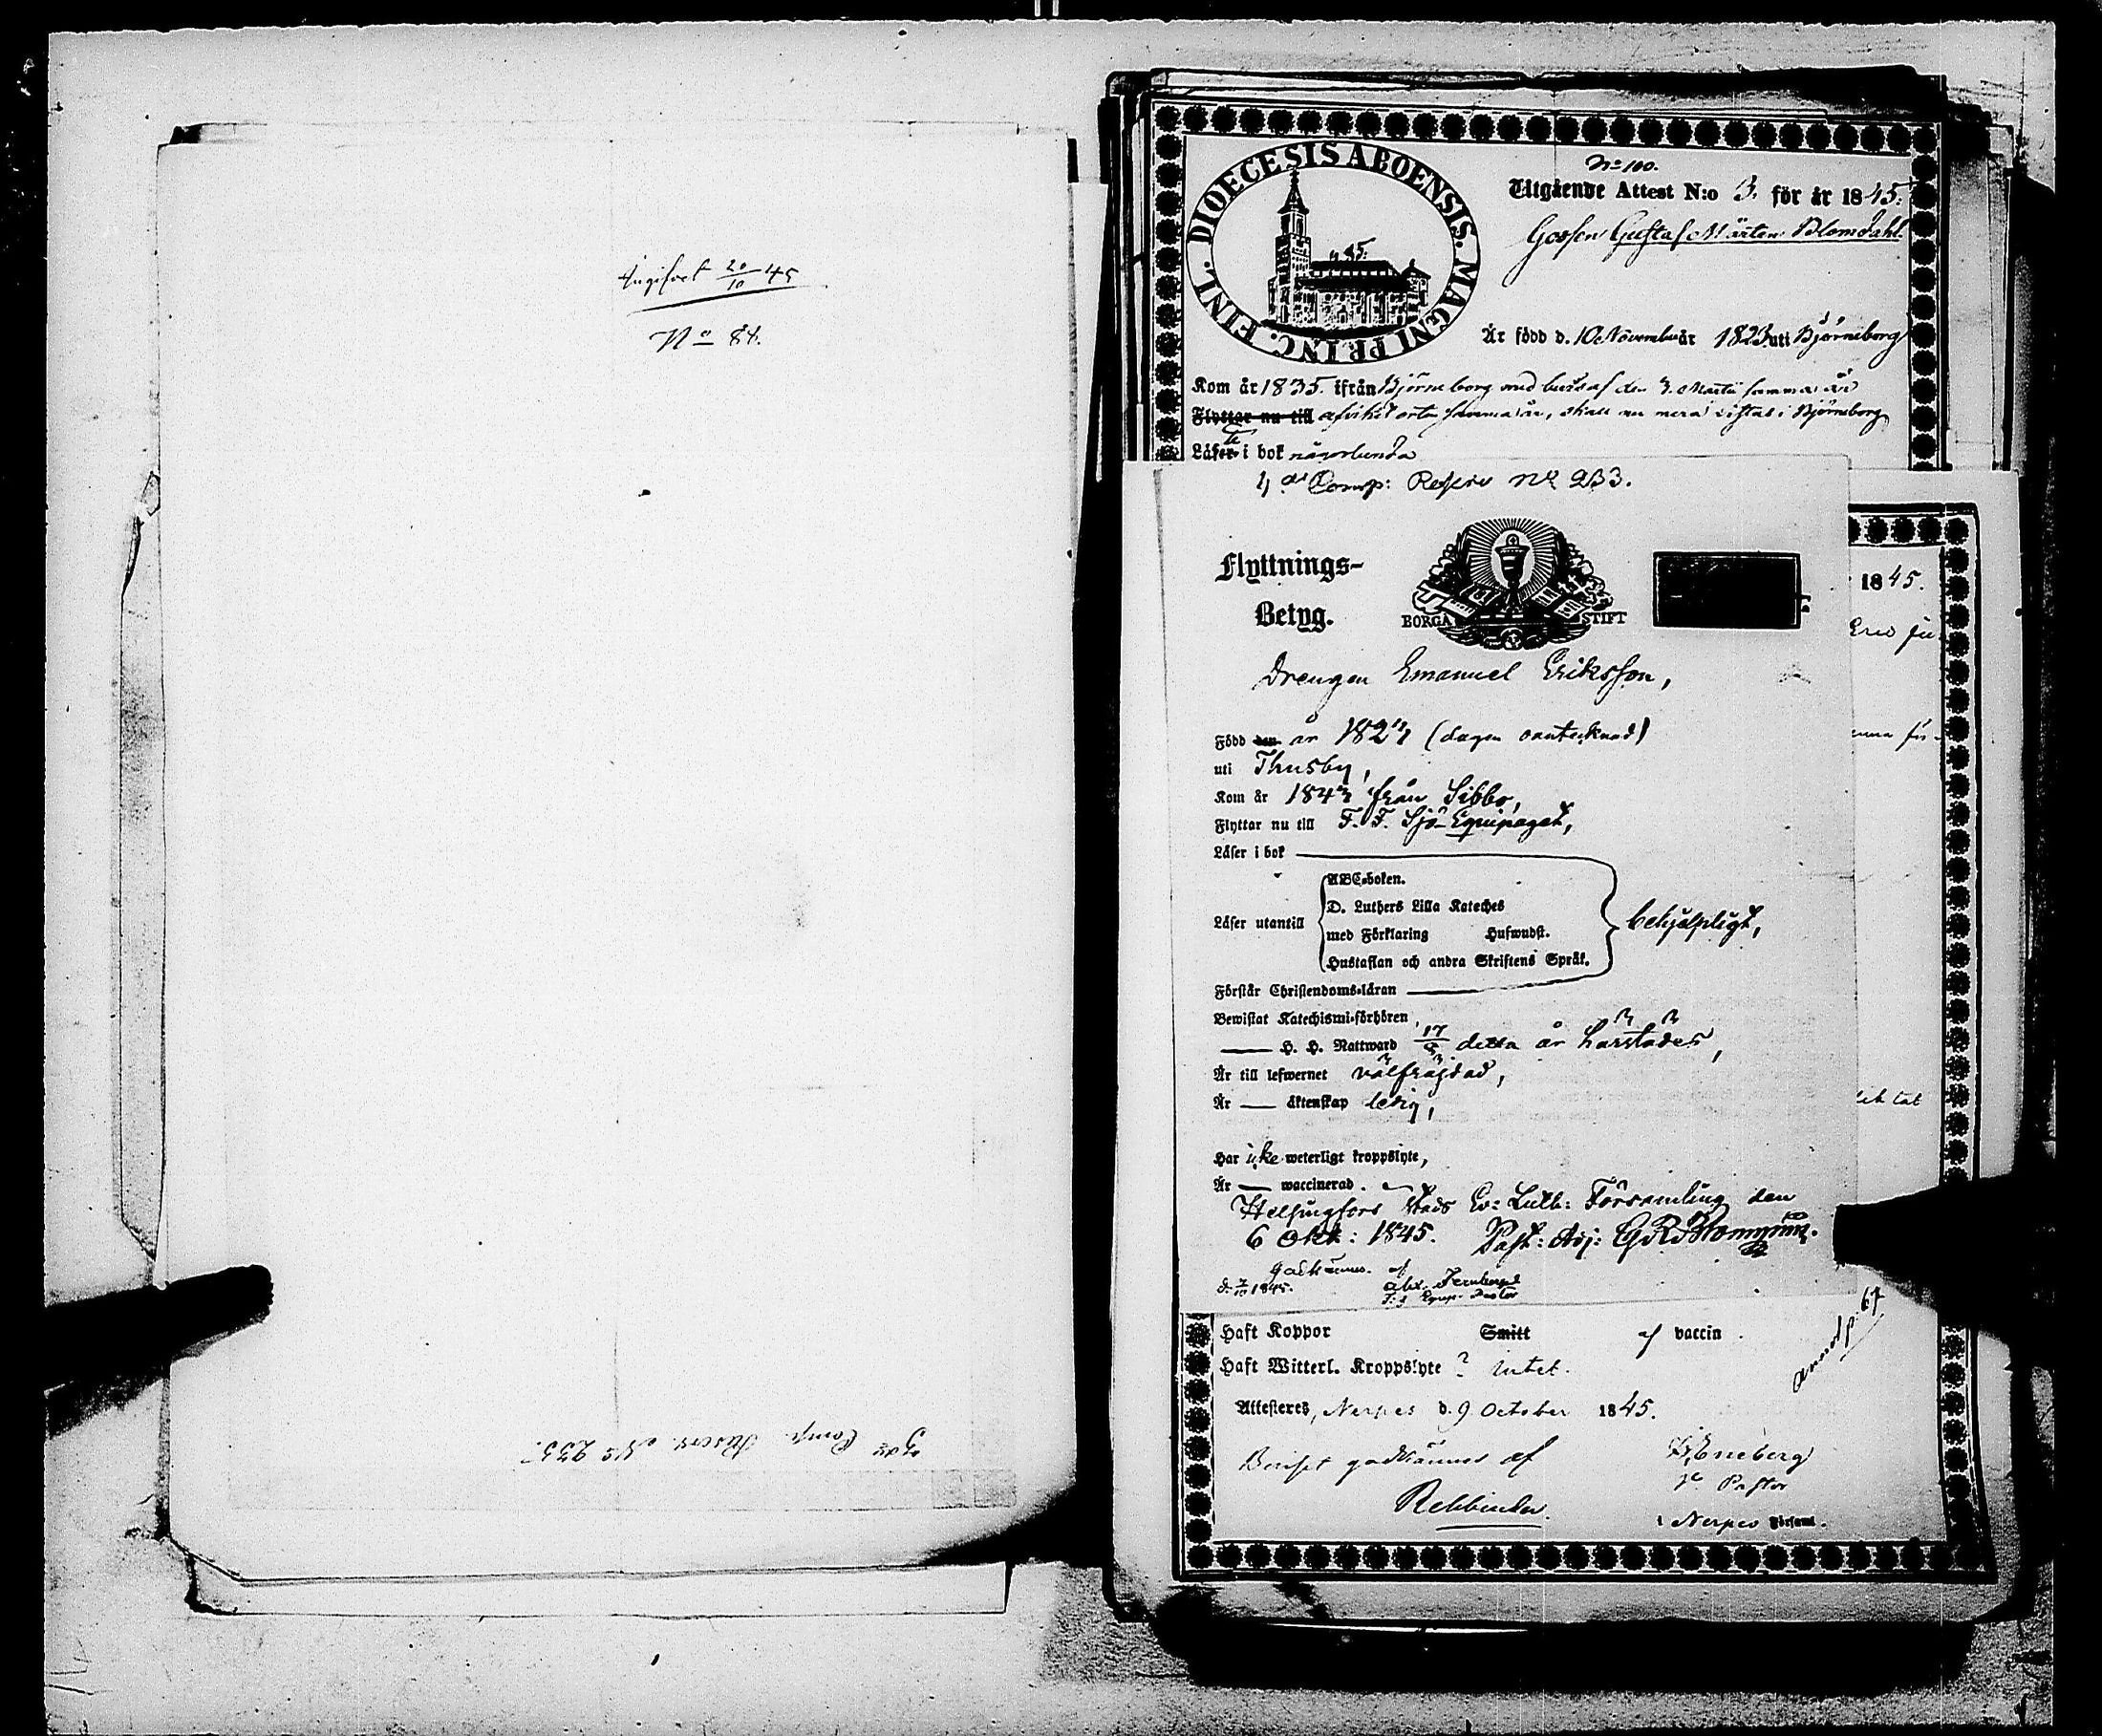 Ingifvet 20/10 45
No 84.
3dje Comp. Reserv. No 233.
DIOECESIS ABOENSIS. MAGNI PRINC. FINL.
No 100.
Utgående Attest N:o 3. för år 1845.
Gossen Gustaf Mårten Blomdahl
Är född d. 10 November år 1823 uti Björneborg
Kom år 1835. ifrån Björneborg med betyg af den 3. Martii samma år
Flyttar nu till afvikit orten samma år, skall nu mera vistas i Björneborg
Läser i bok någorlunda
Comp: Reserv No 233.
Flyttnings-
Betyg.
BORGÅ STIFT
Drengen Emanuel Eriksson,
Född den år 1827 (dagen oantecknad)
uti Thusby,
Kom år 1843 från Sibbo,
Flyttar nu till F. F. Sjö-Equipaget,
Läser i bok
Läser utantill
ABC-boken.
D. Luthers Lilla Kateches
med Förklaring Hufwudst.
Hustaflan och andra Skriftens Språk.
behjelpligt,
Förstår Christendoms-läran
Bewistat Katechismi-förhören
H. H. Nattward 17/8 detta år härstädes,
Är till lefwernet välfräjdad,
Är äktenskap ledig,
Har icke weterligt kroppslyte,
Är waccinerad.
Helsingfors Stads Ev: Luth: Församling den
6 Okt: 1845. Past: Adj:
godkännes af
1845.
Equip. Pastor
1845.
Haft Koppor Smitt af vaccin.
Haft Witterl. Kroppslyte ? intet.
Attesteres, Nerpes d. 9 October 1845.
annot p. 67
Beviset godkännes af
Rehbinder.
Eneberg
Pastor
i Nerpes Församl.